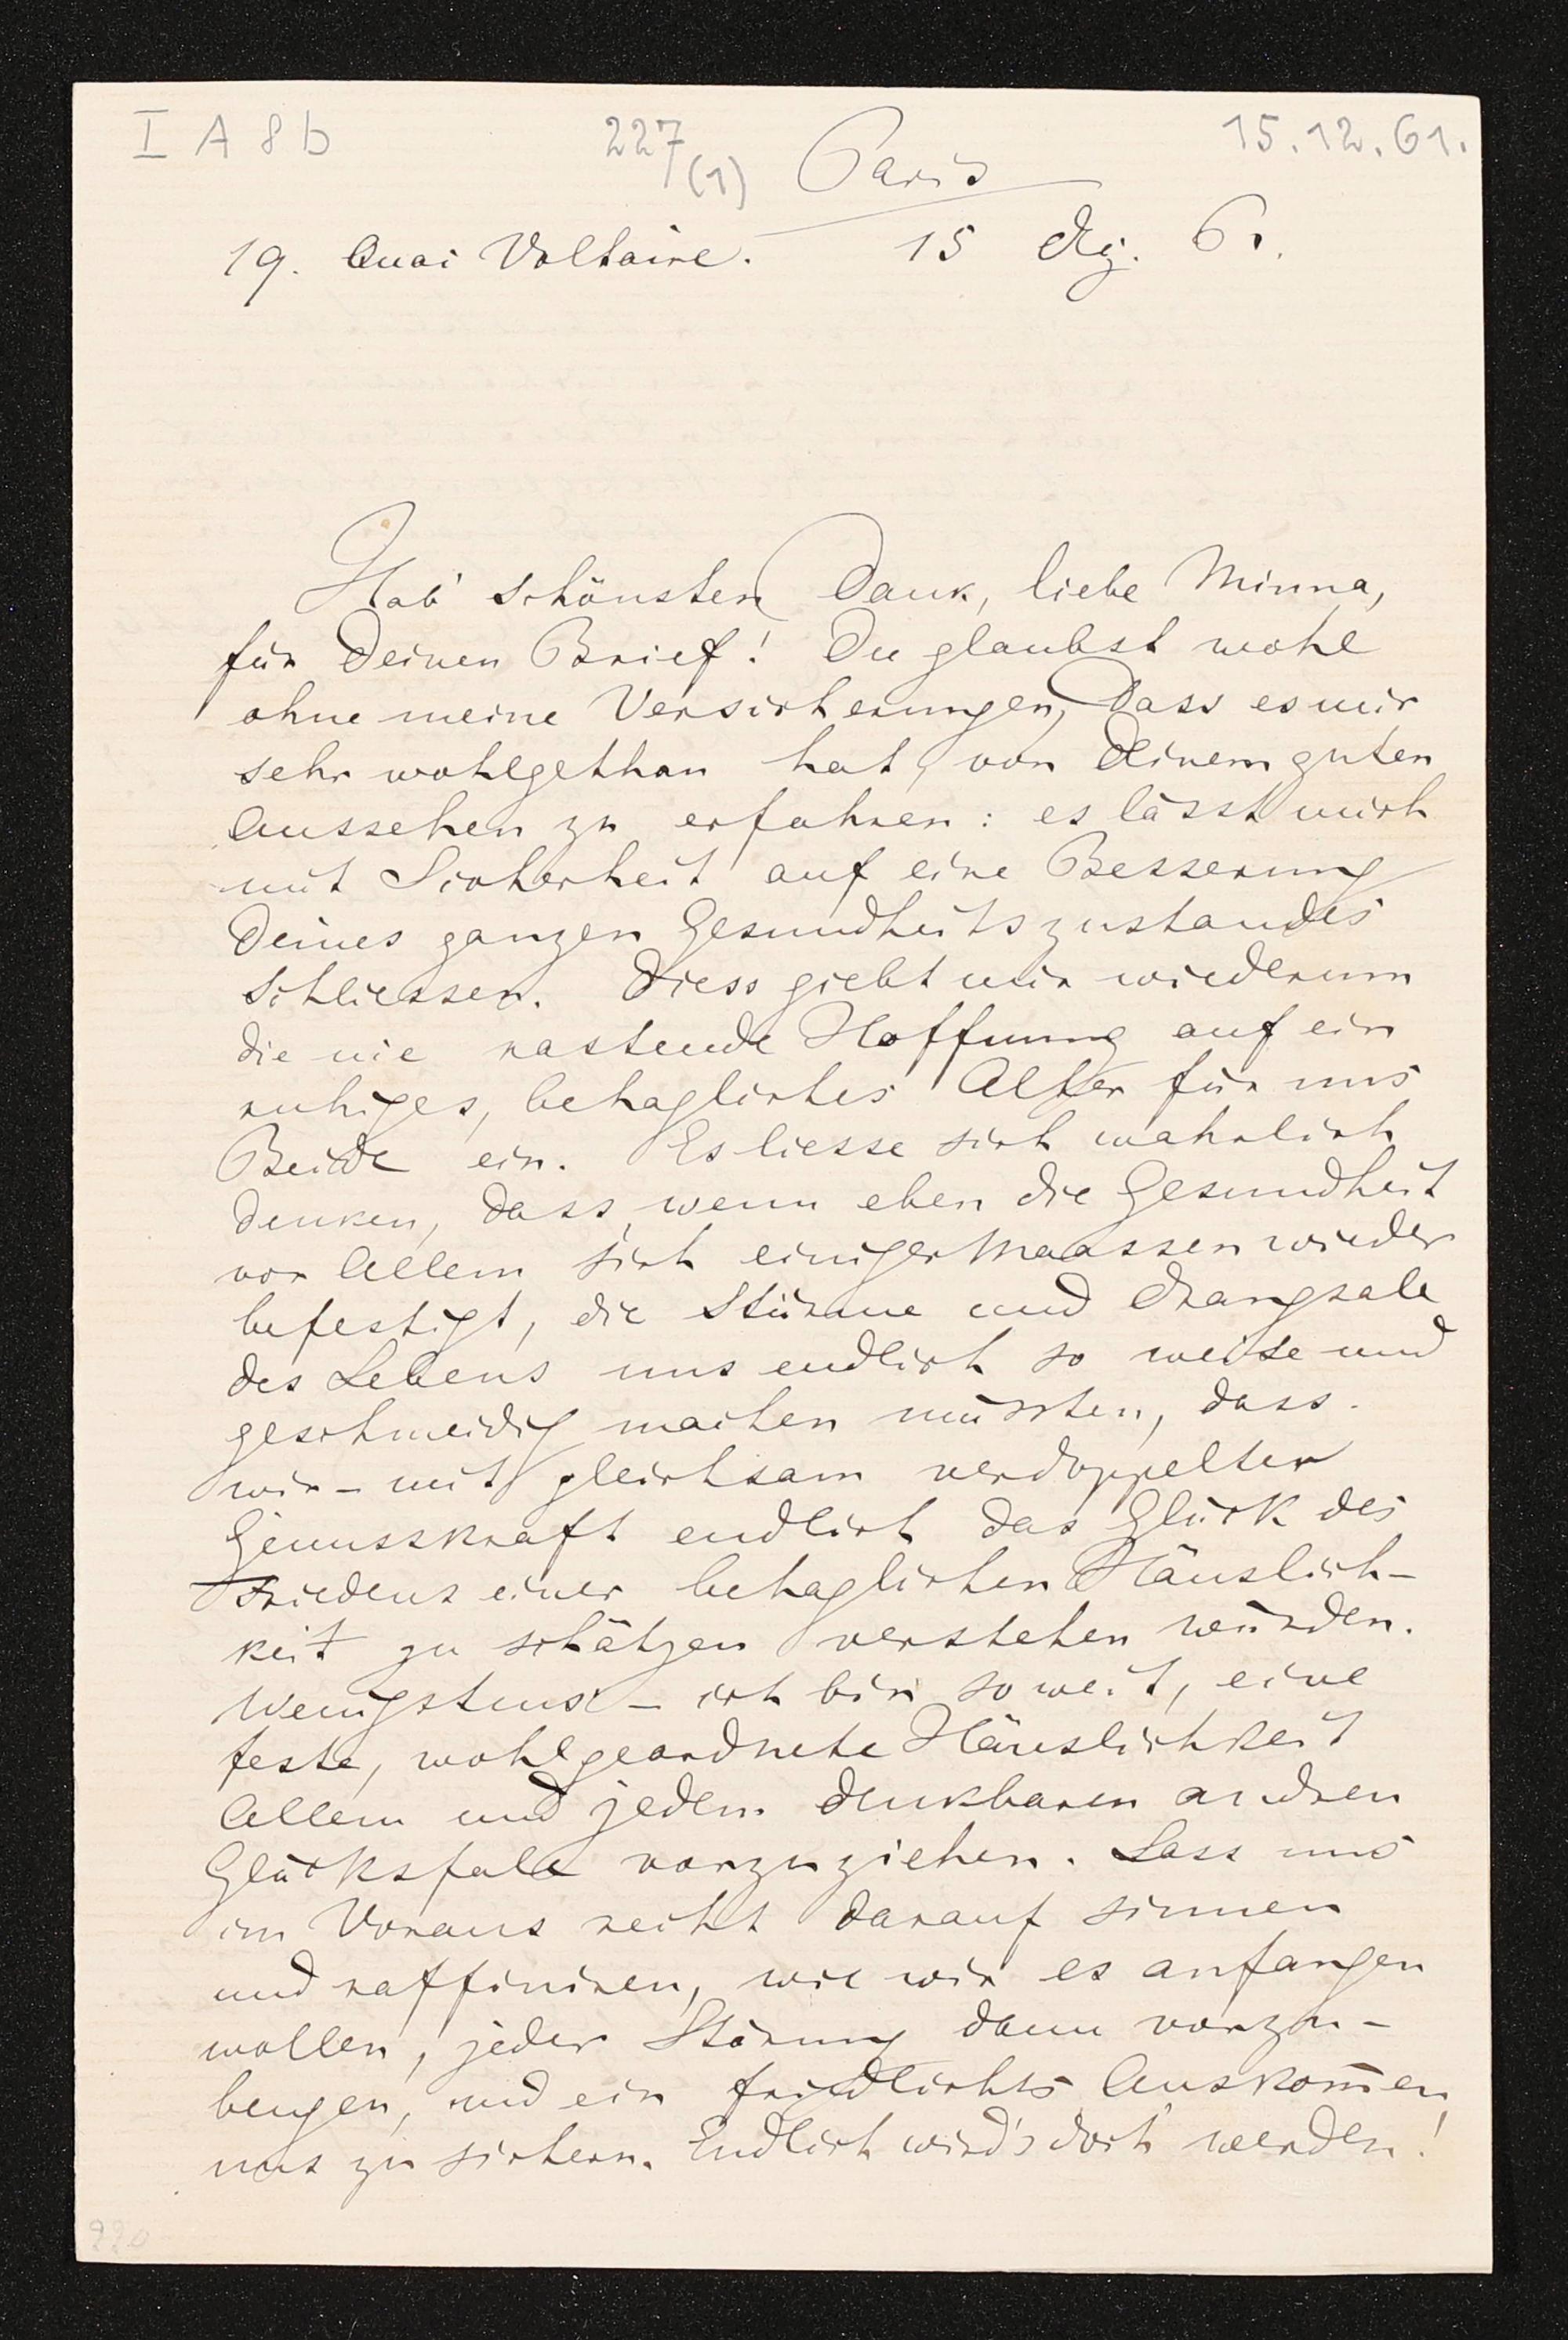 I A 8 b 227 (1) 15.12.61.
Paris
19. Quai Voltaire. 15 Dez. 61.
Hab' schönsten Dank, liebe Minna,
für Deinen Brief! Du glaubst wohl
ohne meine Versicherungen, dass es mir
sehr wohlgethan hat, von Deinem guten
Aussehen zu erfahren: es lässt mich
mit Sicherheit auf eine Besserung
Deines ganzen Gesundheitszustandes
schliessen. Diess giebt mir wiederum
die nie rastende Hoffnung auf ein
ruhiges, behagliches Alter für uns
Beide ein. Es liesse sich wahrlich
denken, dass, wenn eben die Gesundheit
vor Allem sich einigermaassen wieder
befestigt, die Stürme und Drangsale
des Lebens uns endlich so weise und
geschmeidig machen müssten, dass
wir – mit gleichsam verdoppelter
Genusskraft endlich das Glück des
Friedens einer behaglichen Häuslich-
keit zu schätzen verstehen würden.
Wenigstens – ich bin so weit, eine
feste, wohlgeordnete Häuslichkeit
Allem und jedem denkbaren andren
Glücksfalle vorzuziehen. Lass uns
im Voraus recht darauf sinnen
und raffiniren, wie wir es anfangen
wollen, jeder Störung dann vorzu-
beugen, und ein friedliches Auskom̄en
uns zu sichern. Endlich wird's doch werden!